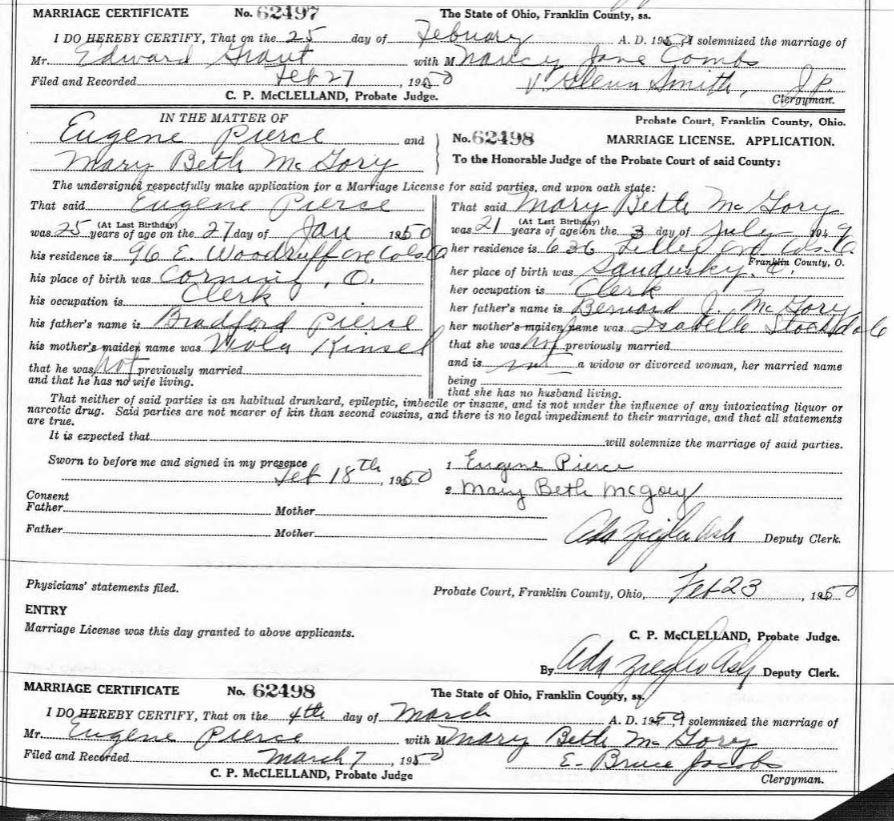 MARRIAGE CERTIFICATE No. 62497 The State of Ohio, Franklin County, ss.
I DO HEREBY CERTIFY, That on the 25 day of Febuary A. D. 1950, I solemnized the marriage of
Mr. Edward Grant with M Nancy Jane Combs
Filed and Recorded Feb 27, 1950 V. Glenn Smith, J.P.
C. P. McCLELLAND, Probate Judge. Clergyman.
IN THE MATTER OF
Eugene Pierce and
Mary Beth McGory
Probate Court, Franklin County, Ohio.
No. 62498 MARRIAGE LICENSE. APPLICATION.
To the Honorable Judge of the Probate Court of said County:
The undersigned respectfully make application for a Marriage License for said parties, and upon oath state:
That said Eugene Pierce
(At Last Birthday)
was 25 years of age on the 27 day of Jan 1950
his residence is 96 E. Woodruff Ave Cols O
his place of birth was Corning, O.
his occupation is Clerk
his father's name is Bradford Pierce
his mother's maiden name was Viola Kinsel
that he was not previously married
and that he has no wife living.
That said Mary Beth McGory
(At Last Birthday)
was 21 years of age on the 3 day of July 1949
her residence is 636 Ave Cols. O.
Franklin County, O.
her place of birth was Sandusky, O.
her occupation is Clerk
her father's name is Bernard J. McGory
her mother's maiden name was Isabelle Stockdale
that she was not previously married
and is not a widow or divorced woman, her married name
being
that she has no husband living.
That neither of said parties is an habitual drunkard, epileptic, imbecile or insane, and is not under the influence of any intoxicating liquor or
narcotic drug. Said parties are not nearer of kin than second cousins, and there is no legal impediment to their marriage, and that all statements
are true.
It is expected that will solemnize the marriage of said parties.
Sworn to before me and signed in my presence Feb 18th, 1950
1 Eugene Pierce
2 Mary Beth McGory
Consent
Father Mother
Father Mother
Ada Ziegler Ash Deputy Clerk.
Physicians' statements filed.
Probate Court, Franklin County, Ohio, Feb 23 1950
ENTRY
Marriage License was this day granted to above applicants.
C. P. McCLELLAND, Probate Judge.
By Ada Ziegler Ash Deputy Clerk.
MARRIAGE CERTIFICATE No. 62498 The State of Ohio, Franklin County, ss.
I DO HEREBY CERTIFY, That on the 4th day of March A. D. 1950, I solemnized the marriage of
Mr. Eugene Pierce with M Mary Beth McGory
Filed and Recorded March 7, 1950 E. Bruce Jacobs
C. P. McCLELLAND, Probate Judge Clergyman.